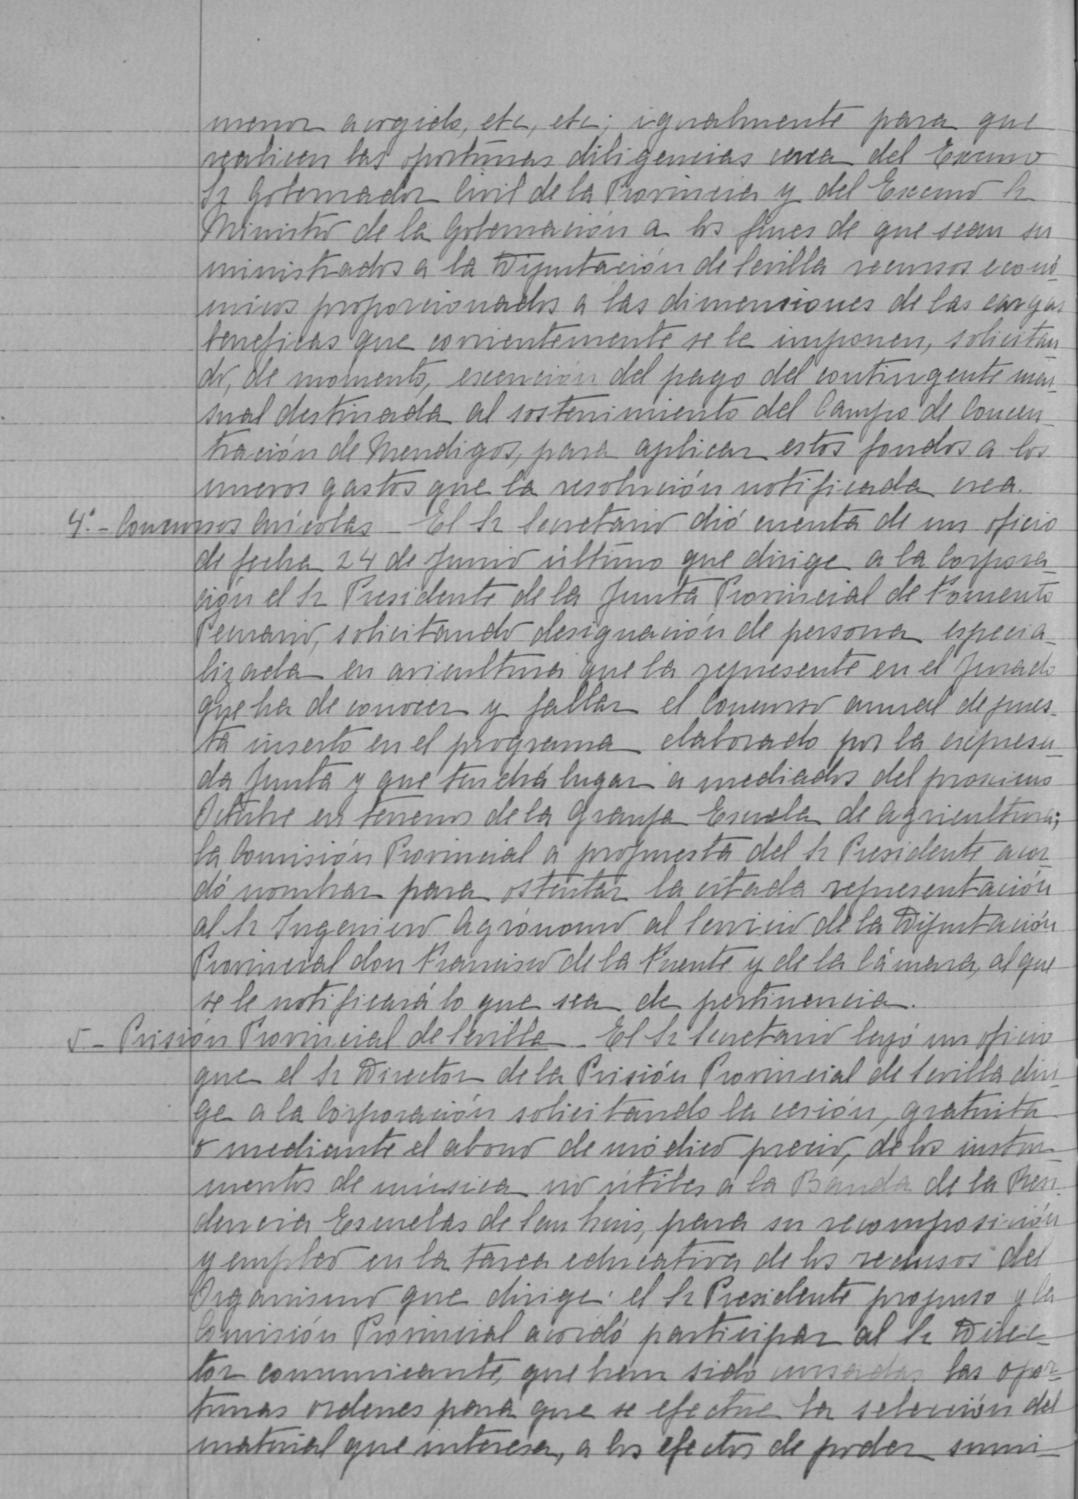 menor acogido, etc, etc; igualmente para que
realicen las oportunas diligencias cerca del Excmo
Sr Gobernador Civil de la Provincia y del Excmo Sr
Ministro de la Gobernación a los fines de que sean su
ministrados a la Diputación de Sevilla recursos econó
micos proporcionados a las dimensiones de las cargas
beneficas que corrientemente se le imponen, solicitan
do, de momento, excención del pago del contingente men
sual destinada al sostenimiento del Campo de Concen
tración de Mendigos, para aplicar estos fondos a los
nuevos gastos que la resolución notificada crea.
4º.- Concursos Avícolas - El Sr Secretario dió cuenta de un oficio
de fecha 24 de Junio último que dirige a la Corpora_
ción el Sr Presidente de la Junta Provincial de Fomento
Pecuario, solicitando designación de persona especia_
lizada en avicultura que la represente en el Jurado
que ha de conocer y fallar el Concurso anual de pues_
ta inserto en el programa elaborado por la expresa_
da Junta y que tendrá lugar a mediados del proximo
Octubre en terrenos de la Granja Escuela de Agricultura;
la Comisión Provincial a propuesta del Sr Presidente acor_
dó nombrar para ostentar la citada representación
al Sr Ingeniero Agrónomo al servicio de la Diputación
Provincial don Francisco de la Puente y de la Cámara, al que
se le notificará lo que sea de pertinencia.
5.- Prisión Provincial de Sevilla - El Sr Secretario leyó un oficio
que el Sr Director de la Prisión Provincial de Sevilla diri_
ge a la Corporación solicitando la cesión, gratuita
o mediante el abono de módico precio, de los instru_
mentos de música no útiles a la Banda de la Resi_
dencia Escuelas de San Luis, para su recomposición
y empleo en la tarea educativa de los reclusos del
Organismo que dirige: el Sr Presidente propuso y la
Comisión Provincial acordó participar al Sr Direc_
tor comunicante, que han sido cursadas las opor_
tunas ordenes para que se efectue la selección del
material que interesa, a los efectos de poder sumi_